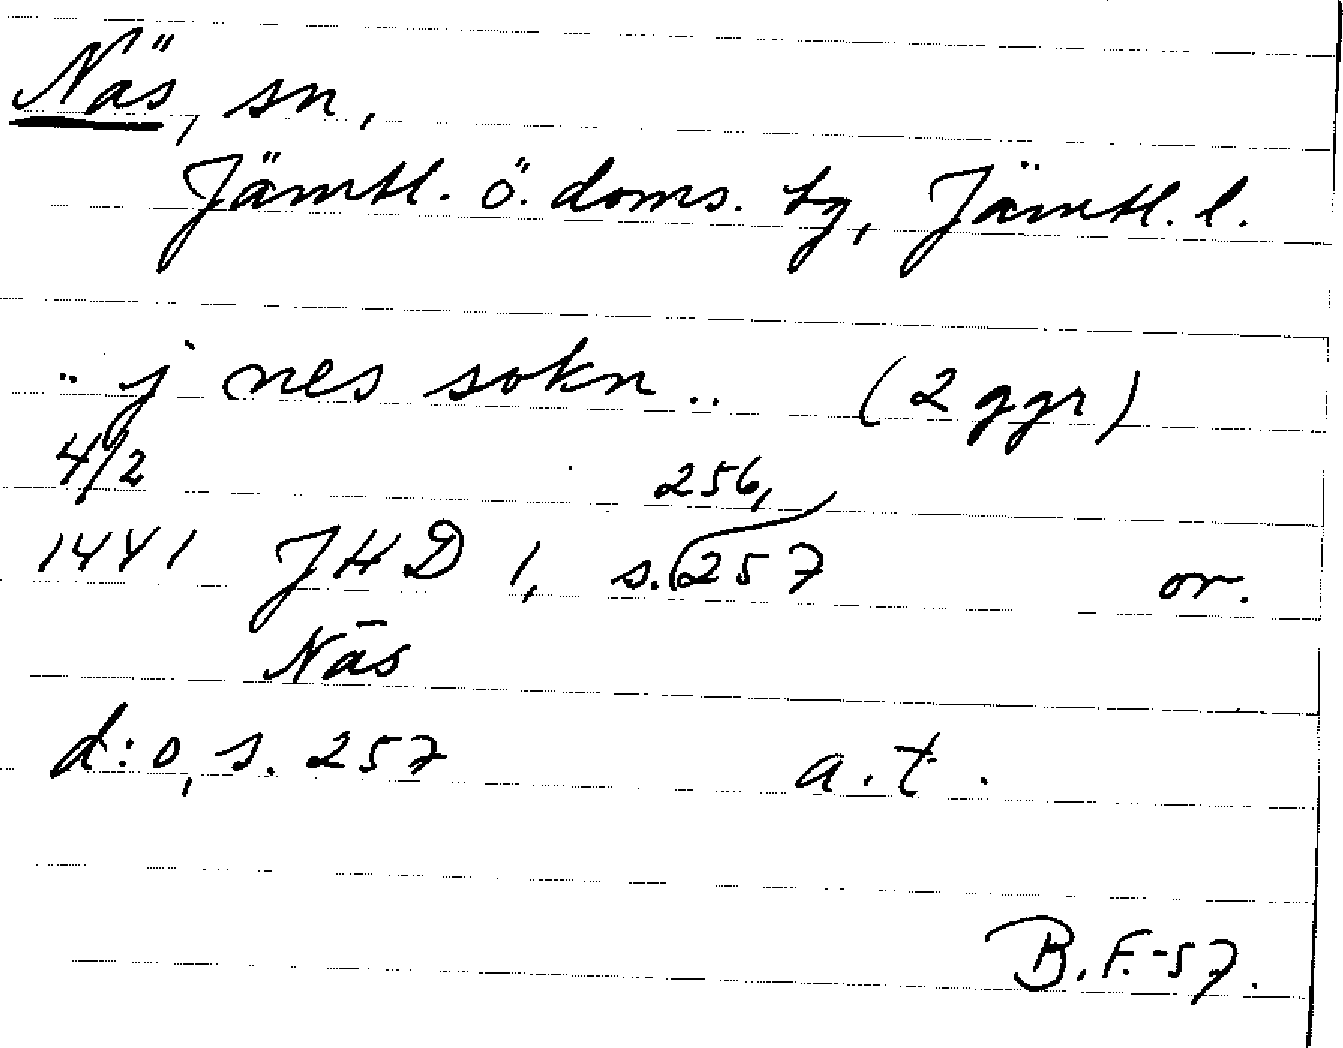 Näs, sn,
Jämtl. ö. doms. tg, Jämtl. l.
.. j nes sokn .. (2 ggr)
4/2
256,
1441 JHD 1, s. 257 or.
Näs
d:o, s. 257 a.t.
B.F.-57.